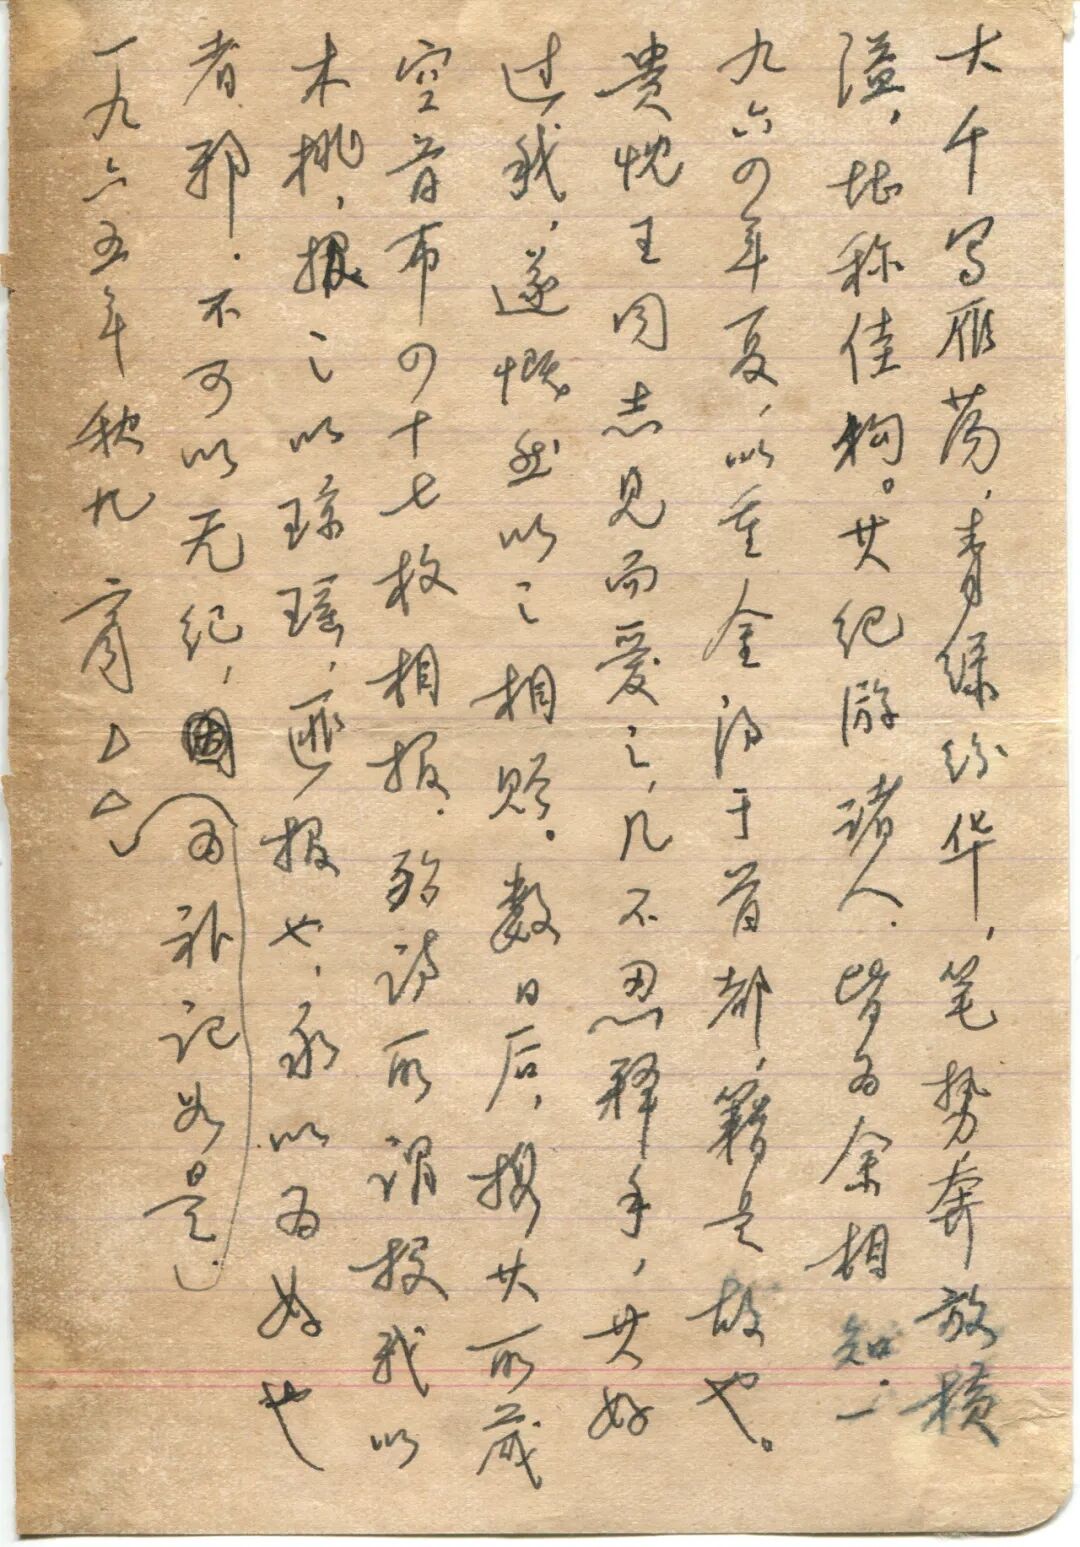 大千写雁荡，青绿纷华，笔势奔放横
溢，堪称佳构。其纪游诸人，皆为余相知。一
九六四年夏，以重金得于首都，籍是故也。
贵忱王同志见而爱之，几不忍释手，其好
过我，遂慨然以之相赠。数日后，拨其所藏
空首布四十七枚相报，殆诗所谓投我以
木桃，报之以琼瑶，匪报也，永以为好也
者邪，不可以无纪，为补记如是。
一九六五年秋九 商